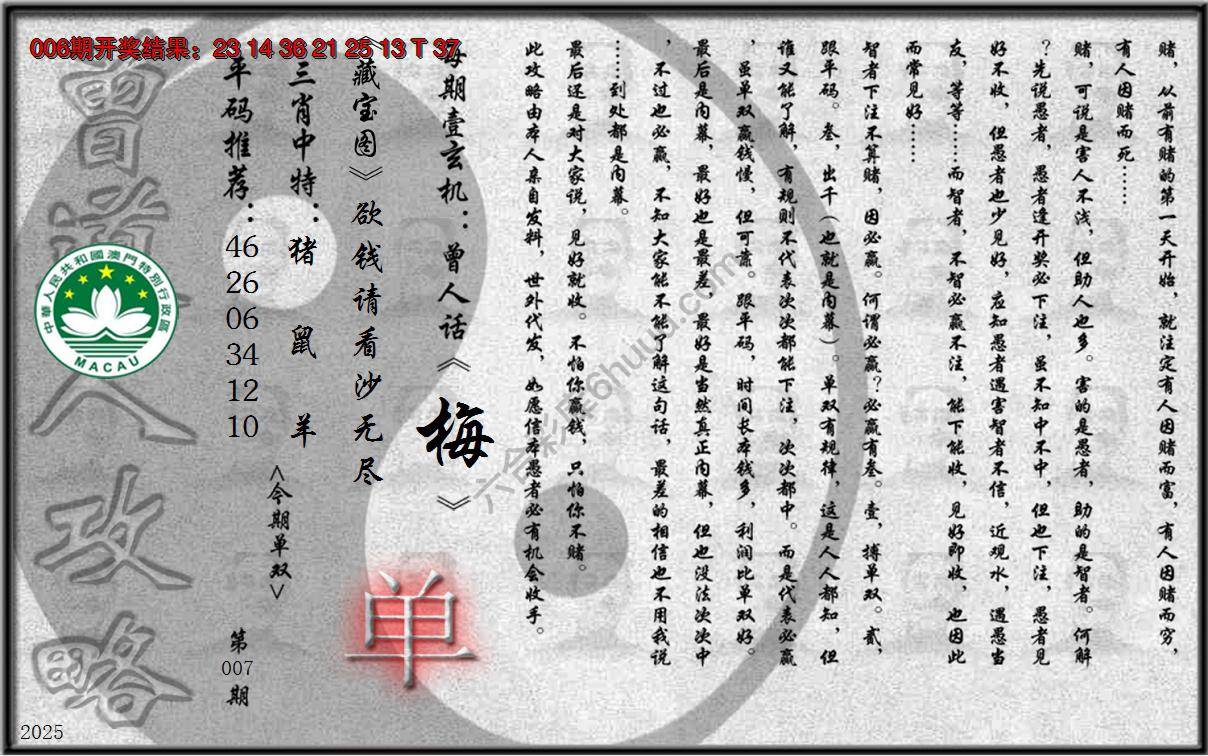 006期开奖结果：23 14 36 21 25 13 T 37
赌，从前有赌的第一天开始，就注定有人因赌而富，有人因赌而穷，
有人因赌而死……
赌，可说是害人不浅，但助人也多。害的是愚者，助的是智者。何解
？先说愚者，愚者逢开奖必下注，虽不知中不中，但也下注，愚者见
好不收，但愚者也少见好，应知愚者遇害智者不信，近观水，遇愚当
友，等等……而智者，不智必赢不注，能下能收，见好即收，也因此
而常见好……
智者下注不算赌，因必赢。何谓必赢？必赢有叁。壹，搏单双。贰，
跟平码。叁，出千（也就是内幕）。单双有规律，这是人人都知，但
谁又能了解，有规则不代表次次都能下注，次次都中。而是代表必赢
，虽单双赢钱慢，但可靠。跟平码，时间长本钱多，利润比单双好。
最后是内幕，最好也是最差，最好是当然真正内幕，但也没法次次中
，不过也必赢，不知大家能不能了解这句话，最差的相信也不用我说
……到处都是内幕。
最后还是对大家说，见好就收。不怕你赢钱，只怕你不赌。
此攻略由本人亲自发料，世外代发，如愿信本愚者必有机会收手。
每期壹玄机：曾人话《梅》
《藏宝图》欲钱请看沙无尽
单
三肖中特：猪 鼠 羊
<今期单双>
平码推荐：
46
26
06
34
12
10
第
007
期
曾道人攻略
中華人民共和國澳門特別行政區
MACAU
2025